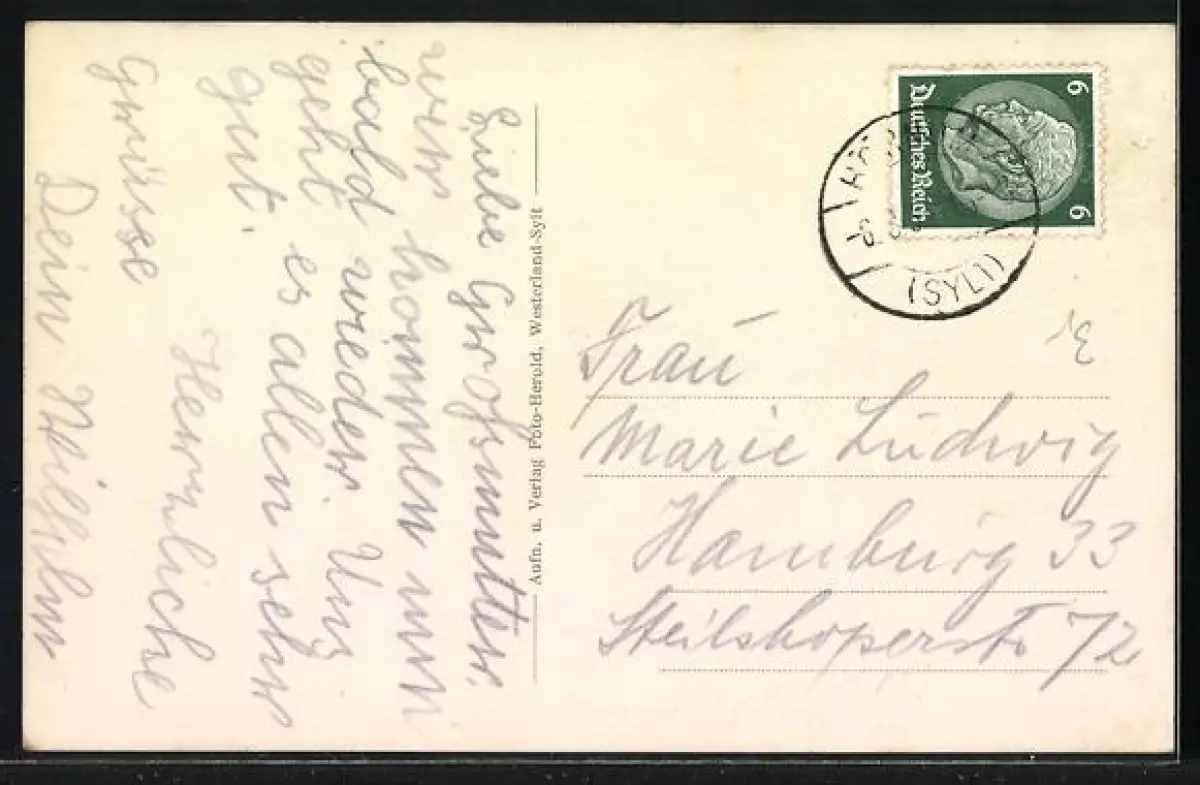 Liebe Grofsmutter.
wir kommen nun
bald wieder. Uns
geht es allen sehr
gut.
Herzliche
Grüsse
Dein Wilhelm
Aufn. u. Verlag Foto-Herold, Westerland-Sylt
6 6
Deutsches Reich
(SYLT)
Frau
Marie Ludwig
Hamburg 33
Steilshoperstr 72